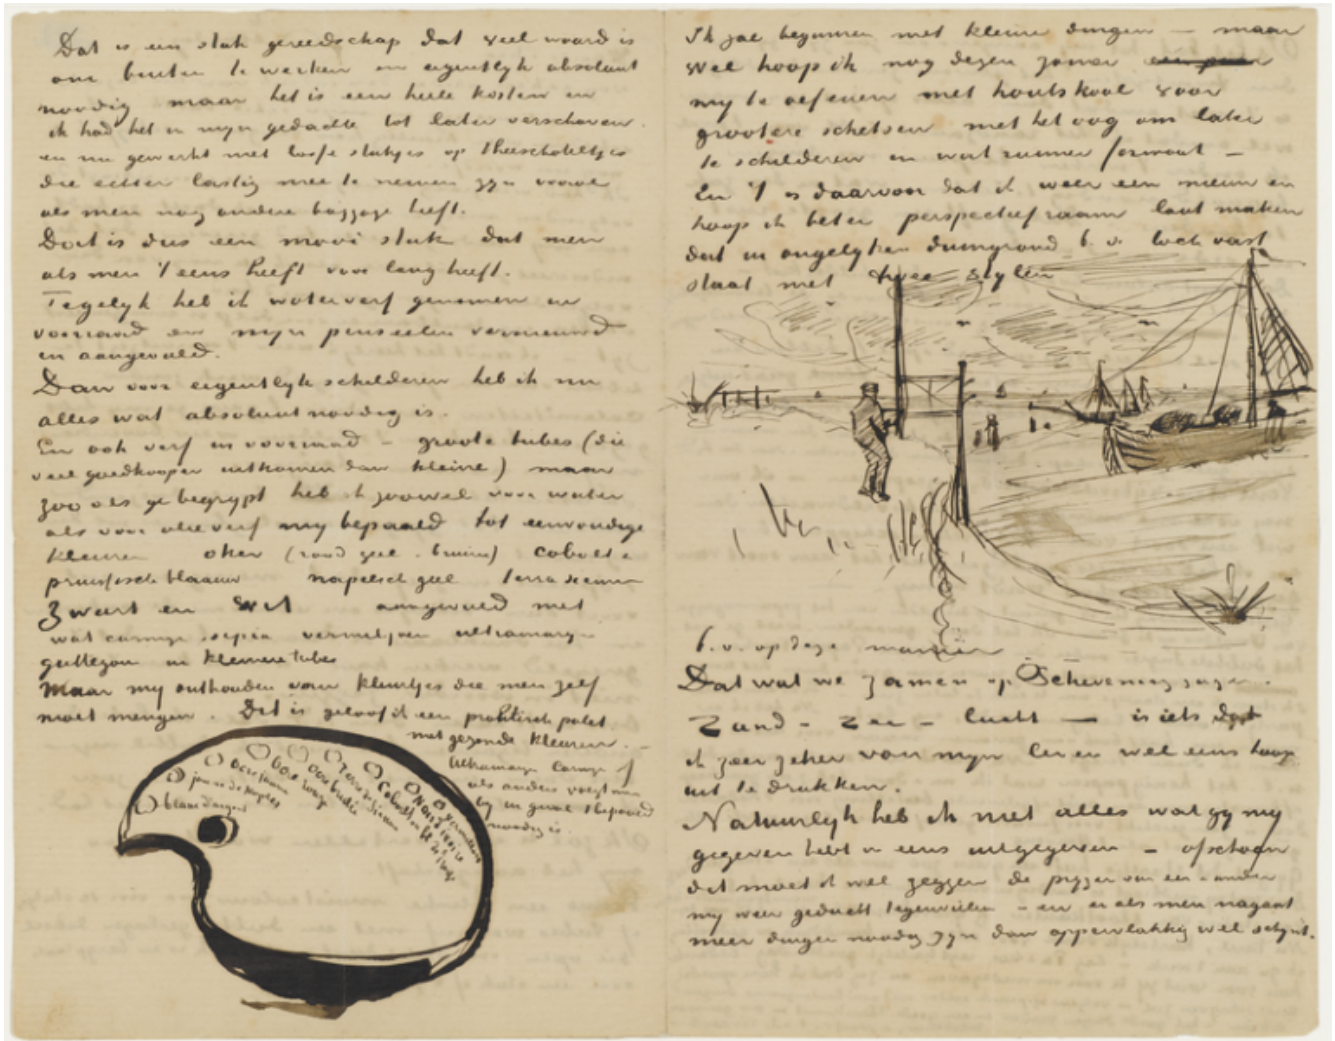 Dat is een stuk gereedschap dat veel waard is
om buiten te werken en eigentlyk absoluut
noodig maar het is een heele kosten en
ik had het in myn gedachte tot later verschoven
en nu gewerkt met losse stukjes op theeschoteltjes
die echter lastig mee te nemen zyn vooral
als men nog andere baggage heeft.
Dat is dus een mooi stuk dat men
als men 't eens heeft voor lang heeft.
Tegelyk heb ik waterverf genomen in
voorraad en myn penseelen vernieuwd
en aangevuld.
Dan voor eigentlyk schilderen heb ik nu
alles wat absoluut noodig is.
En ook verf in voorraad – groote tubes (die
veel goedkooper uitkomen dan kleine) maar
zoo als ge begrypt heb ik zoowel voor water
als voor olieverf my bepaald tot eenvoudige
kleuren oker (rood geel - bruin) cobolt &
pruissisch blaauw napelsch geel terra sienna
Zwart en wit aangevuld met
wat carmyn sepia vermiljoen ultramaryn
guttegom in kleinere tubes
Maar my onthouden van kleurtjes die men zelf
moet mengen. Dit is geloof ik een praktisch palet
met gezonde kleuren. –
Ultramaryn Carmyn of
als anders voegt men
by in geval 't bepaald
noodig is.
blanc d'argent
jaune de naples
ocre jaune
ocre rouge
ocre brulée
terre de sienne
Cobolt
Noir
vermillon
Ik zal beginnen met kleine dingen – maar
wel hoop ik nog dezen zomer
my te oefenen met houtskool voor
grootere schetsen met het oog om later
te schilderen in wat ruimer formaat –
En 't is daarvoor dat ik weer een nieuw en
hoop ik beter perspectiefraam laat maken
dat in ongelyken duingrond b.v. toch vast
staat met twee stylen
b.v. op deze manier
Dat wat we zamen op Scheveningen zagen.
Zand – zee – lucht – is iets dat
ik zeer zeker van myn leven wel eens hoop
uit te drukken.
Natuurlyk heb ik niet alles wat gy my
gegeven hebt in eens uitgegeven – ofschoon
dit moet ik wel zeggen de pryzen van een & ander
my weer geducht tegenvielen – en er als men nagaat
meer dingen noodig zyn dan oppervlakkig wel schynt.